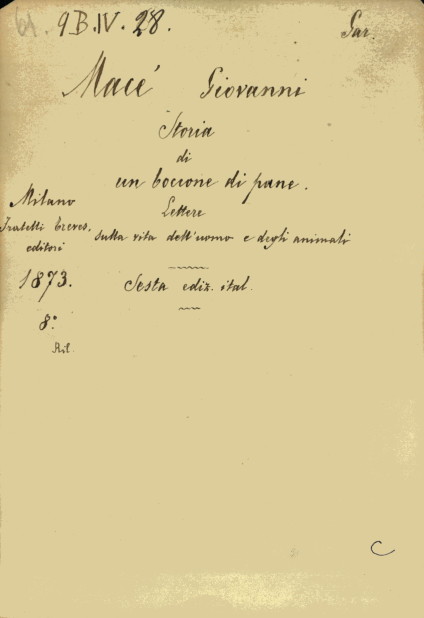 61. 9B.IV.28.
Gar.
Macé Giovanni
Storia
di
un boccone di pane.
Lettere
sulla vita dell'uomo e degli animali
Milano
Fratelli Treves,
editori
1873.
Sesta ediz. ital.
8.º
Ril.
C